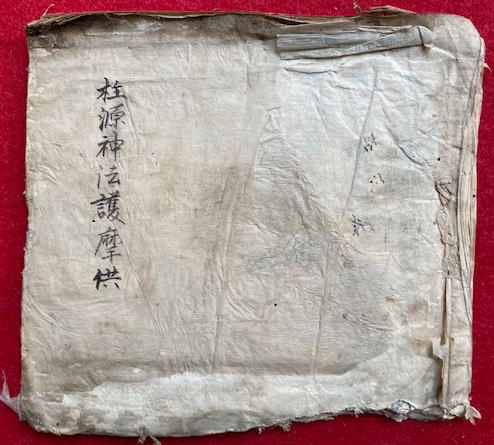 柱源神法護摩供